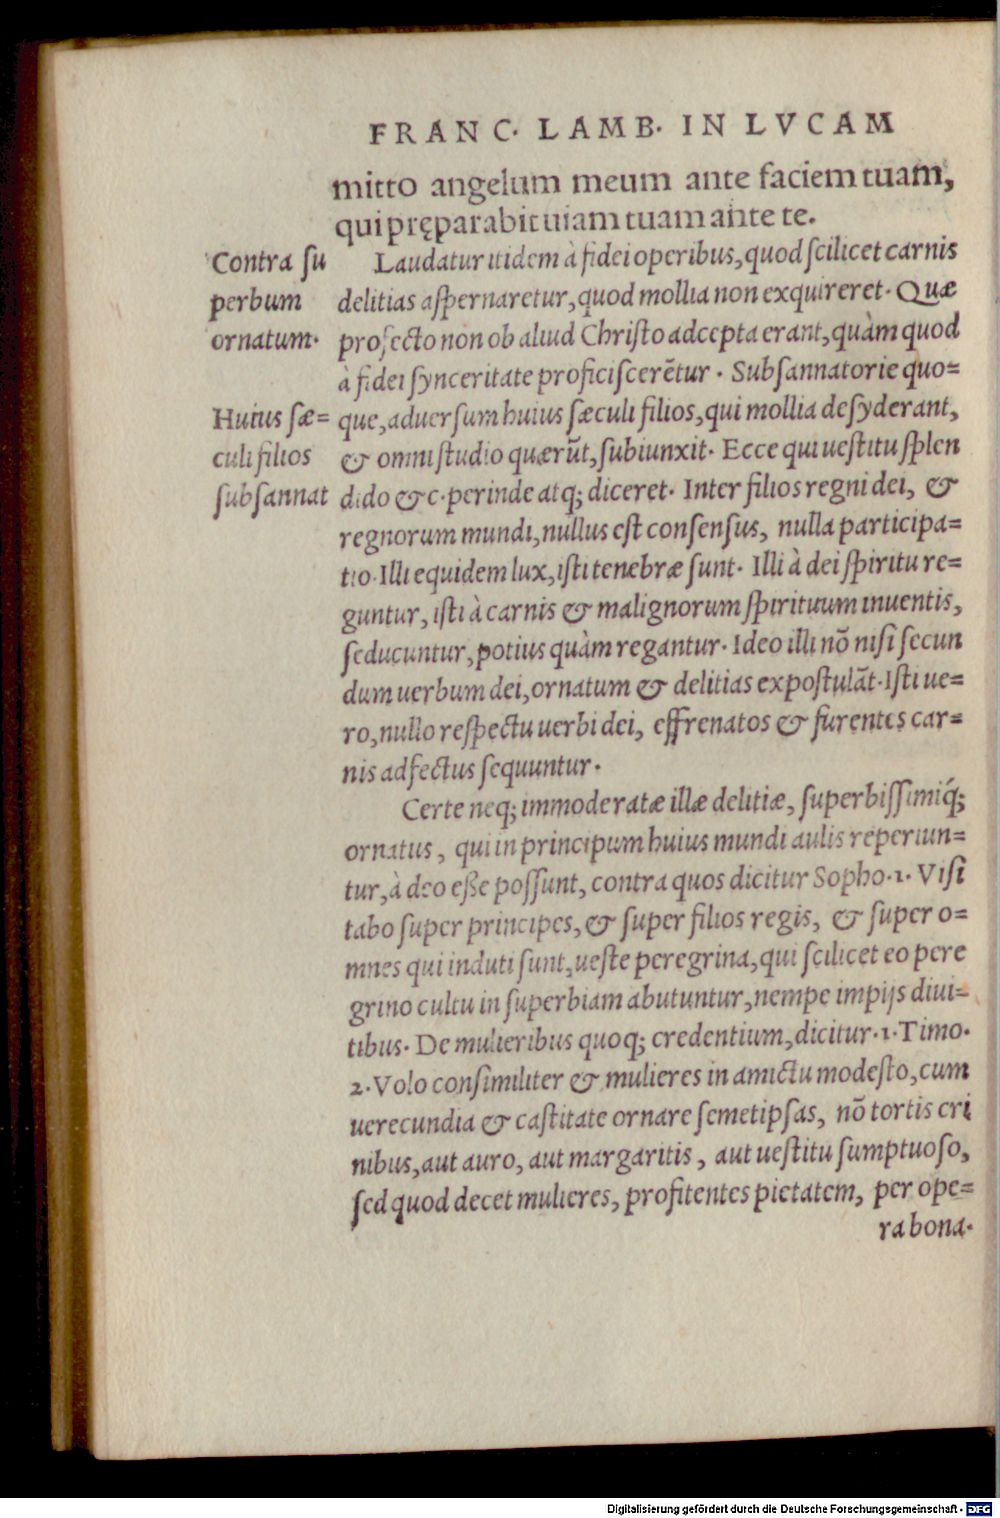 FRANC. LAMB. IN LVCAM
mitto angelum meum ante faciem tuam,
qui pręparabit uiam tuam ante te.
Contra su
perbum
ornatum.
Laudatur itidem à fidei operibus, quod scilicet carnis
delitias aspernaretur, quod mollia non exquireret. Quæ
profecto non ob aliud Christo adcepta erant, quàm quod
à fidei synceritate proficiscerētur. Subsannatorie quo=
Huius sæ=
culi filios
subsannat
que, aduersum huius sæculi filios, qui mollia desyderant,
& omni studio quærūt, subiunxit. Ecce qui uestitu splen
dido &c. perinde atq; diceret. Inter filios regni dei, &
regnorum mundi, nullus est consensus, nulla participa=
tio. Illi equidem lux, isti tenebræ sunt. Illi à dei spiritu re=
guntur, isti à carnis & malignorum spirituum inuentis,
seducuntur, potius quàm regantur. Ideo illi nō nisi secun
dum uerbum dei, ornatum & delitias expostulāt. Isti ue=
ro, nullo respectu uerbi dei, effrenatos & furentes car=
nis adfectus sequuntur.
Certe neq; immoderatæ illæ delitiæ, superbissimiq́;
ornatus, qui in principum huius mundi aulis reperiun=
tur, à deo eße possunt, contra quos dicitur Sopho. 1. Visi
tabo super principes, & super filios regis, & super o=
mnes qui induti sunt, ueste peregrina, qui scilicet eo pere
grino cultu in superbiam abutuntur, nempe impijs diui=
tibus. De mulieribus quoq; credentium, dicitur. 1. Timo.
2. Volo consimiliter & mulieres in amictu modesto, cum
uerecundia & castitate ornare semetipsas, nō tortis cri
nibus, aut auro, aut margaritis, aut uestitu sumptuoso,
sed quod decet mulieres, profitentes pietatem, per ope=
ra bona.
Digitalisierung gefördert durch die Deutsche Forschungsgemeinschaft - DFG